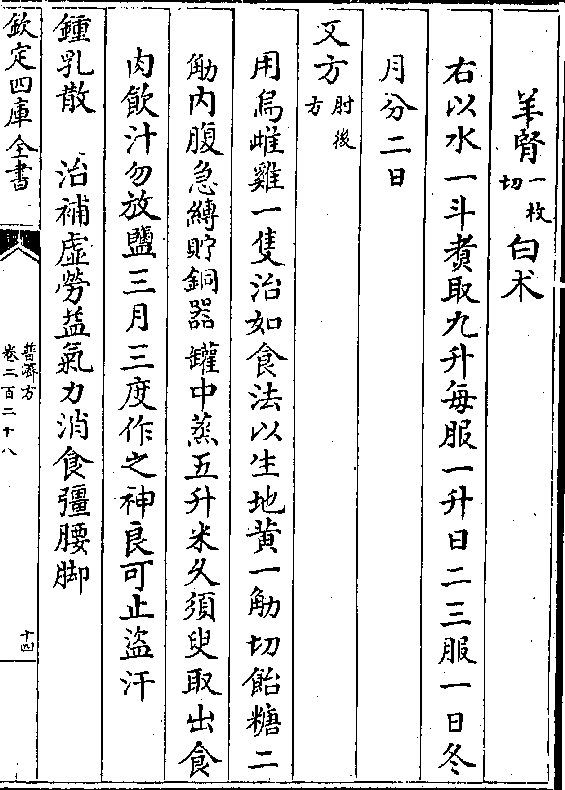 羊腎一枚切 白术
右以水一斗煮取九升每服一升日二三服一日冬
月分二日
又方肘後方
用烏雌雞一隻治如食法以生地黄一觔切飴糖二
觔内腹急縛貯銅器罐中蒸五升米久須臾取出食
肉飲汁勿放鹽三月三度作之神良可止盜汗
鍾乳散 治補虛勞益氣力消食彊腰脚
欽定四庫全書
普濟方
卷二百二十八
十四